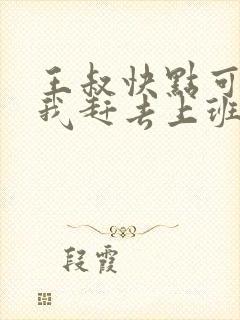 王叔快點可
我赶去上班
段霞